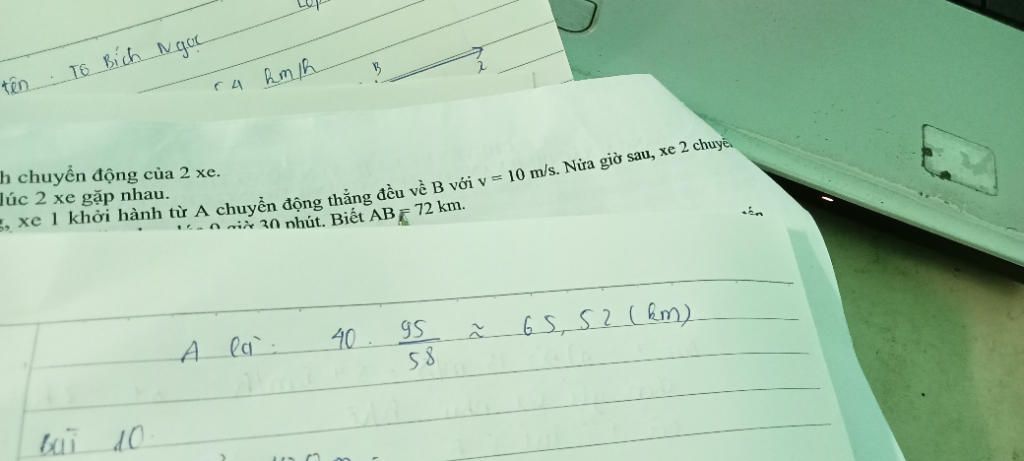 tên : Tô Bích Ngọc
54 km/h
B
h chuyển động của 2 xe.
lúc 2 xe gặp nhau.
g, xe 1 khởi hành từ A chuyển động thẳng đều về B với v = 10 m/s. Nửa giờ sau, xe 2 chuyể
giờ 30 phút. Biết AB = 72 km.
A là: 40 . 95/58 ≈ 65,52 (km)
bài 10